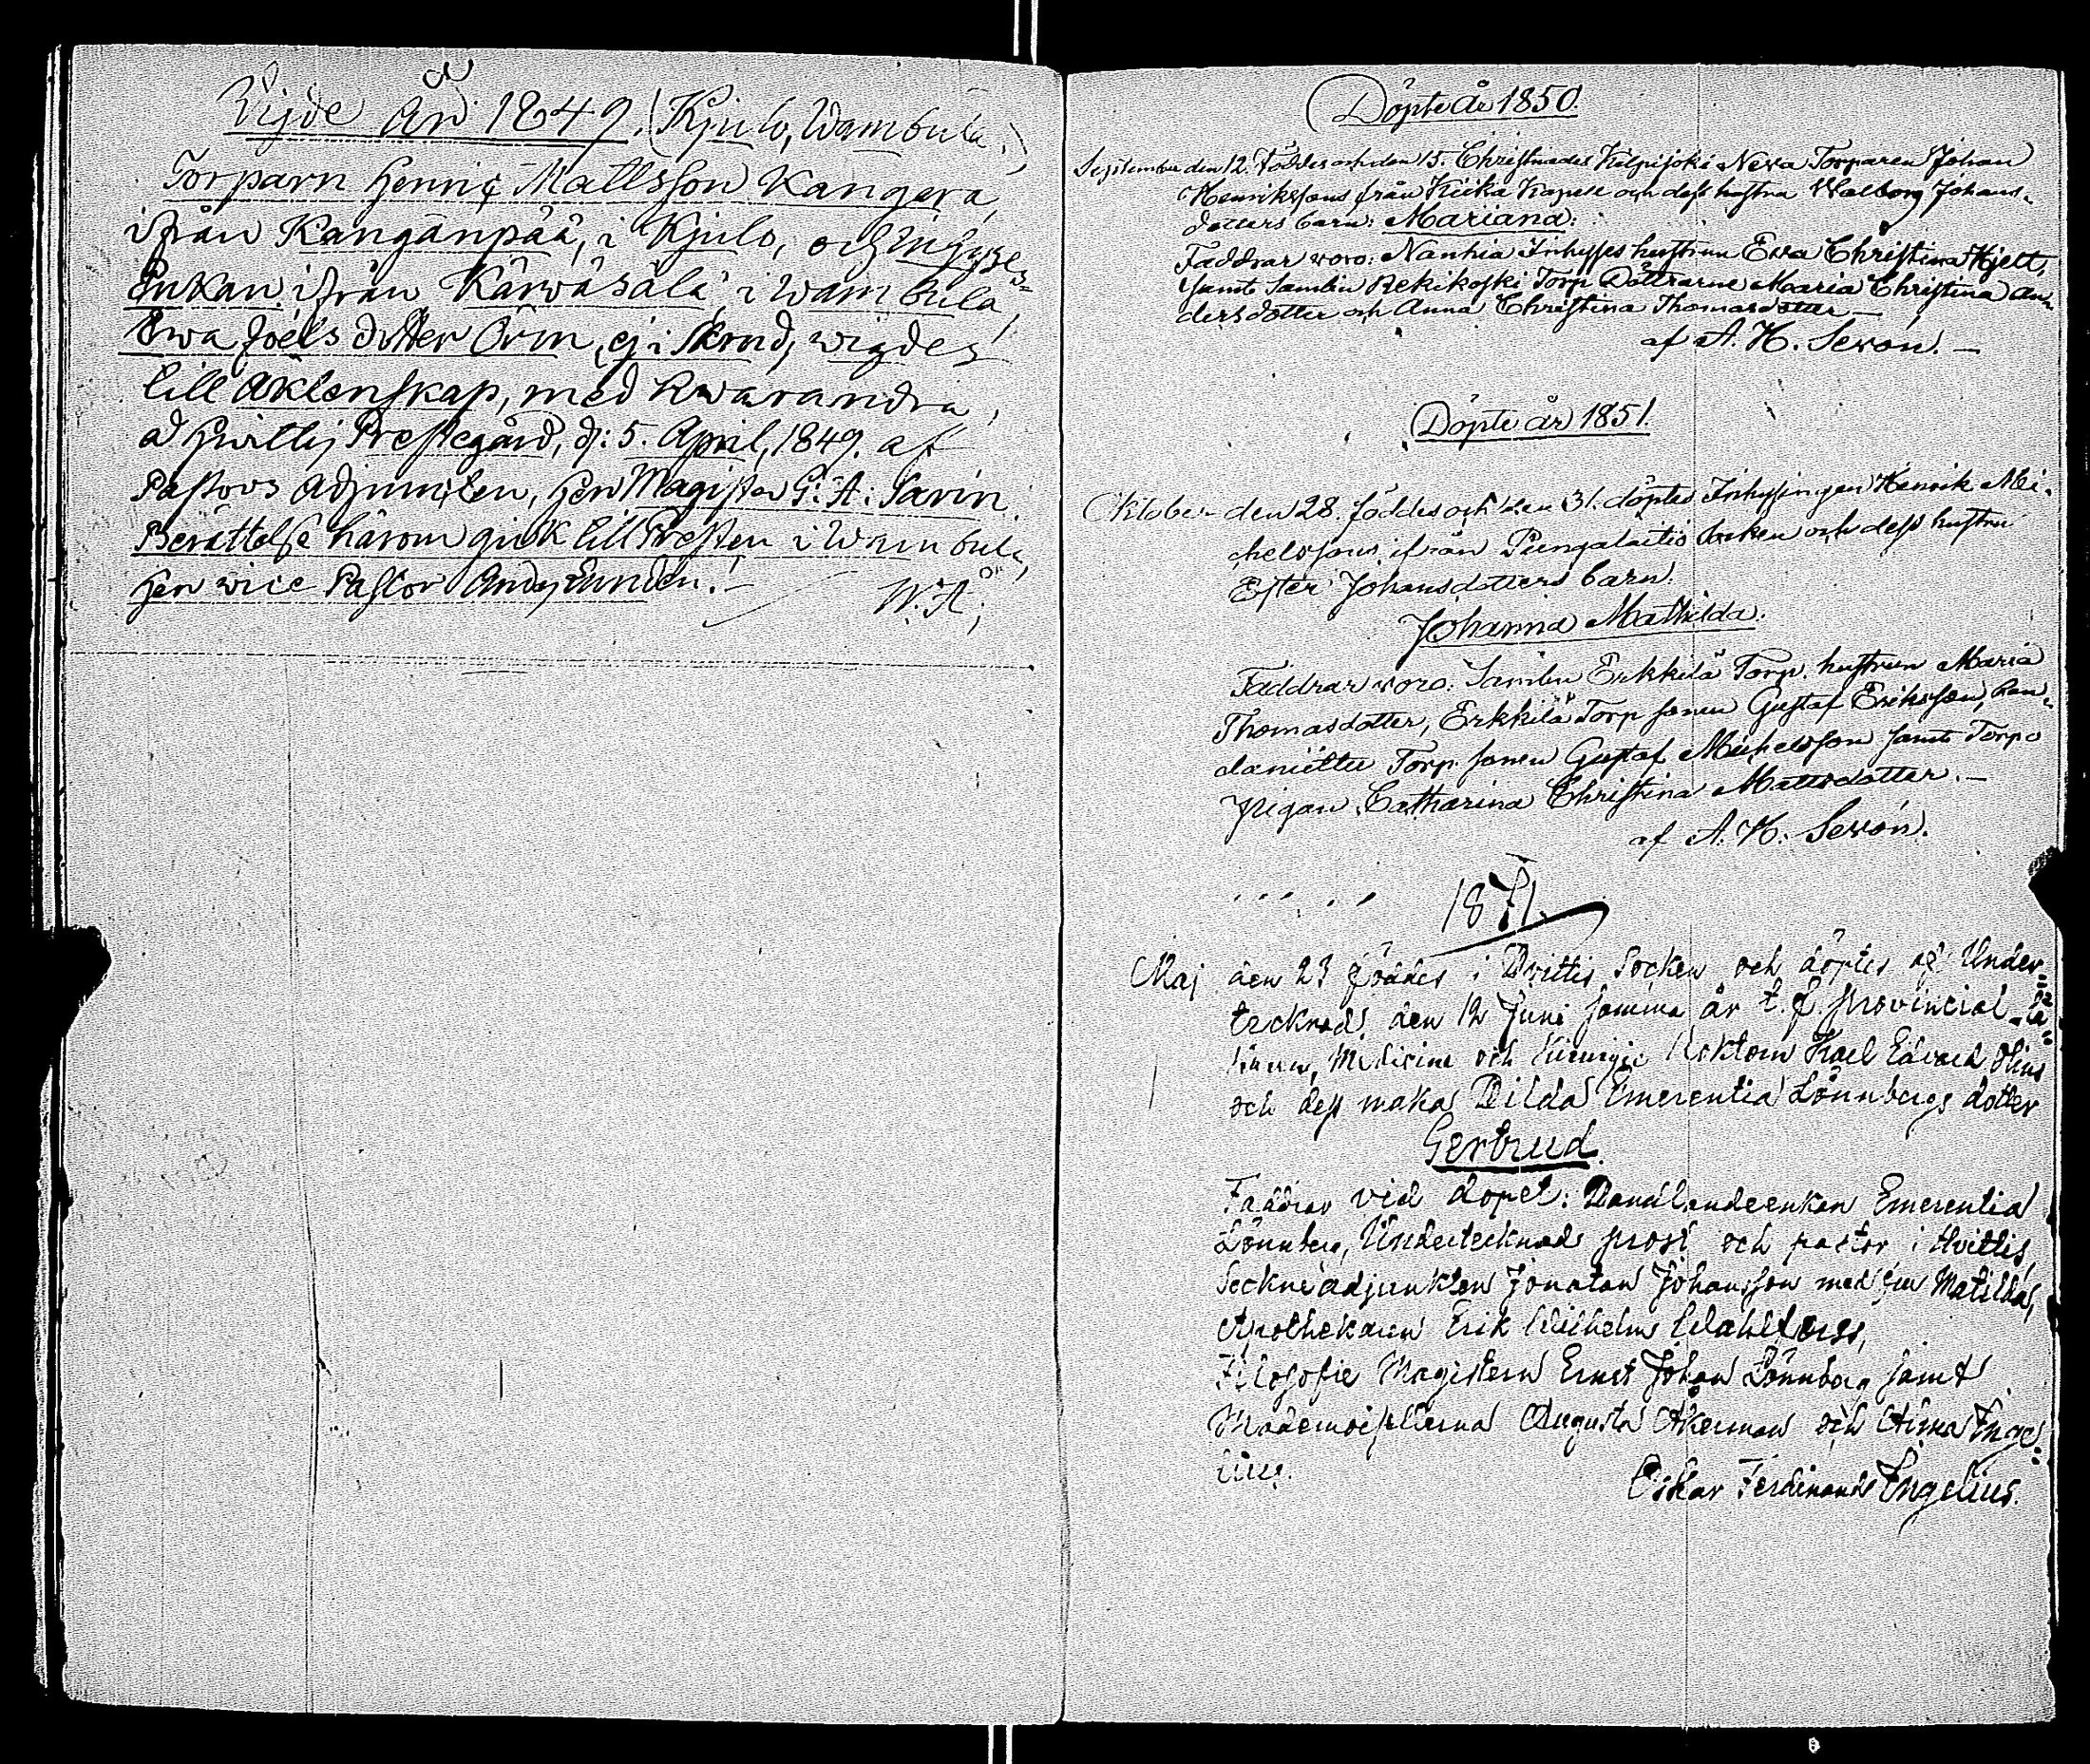 Vigde År 1849. (Kjulo, Wambula.)
Torparn Henric Mattsson Kangera,
ifrån Kangänpää, i Kjulo, och Inhyses-
Enkan ifrån Kärväsälä i Wambula,
Ewa Joëls dotter Örn, ej i Skrud, wigdes
till Äktenskap, med hwarandra,
å Hvittis Prestegård, d: 5. April, 1849. af
Pastors Adjuncten, Herr Magister G: A: Savin.
Berättelse härom gick till Presten i Wambula,
Herr vice Pastor Lundén.
W. A.
Döpte år 1850.
September den 12. Föddes och den 15. Christnades Kilpijoki Neva Torparen Johan
Henrikssons från Kiika Kapell och dess hustru Walborg Johans-
dotters barn: Mariana.
Faddrar woro: Nanhia Inhyses hustrun Ewa Christina Hjelt,
samt Samlin Rekikoski Torp Döttrarne Maria Christina An-
dersdotter och Anna Christina Thomasdotter —
af A. H. Sevón. —
Döpte år 1851.
Oktober den 28. föddes och den 31. döptes Inhysingen Henrik Mi-
chelssons ifrån Pungalaitio Socken och dess hustru
Ester Johansdotters barn.
Johanna Mathilda.
Faddrar woro: Samlin Erkkilä Torp. hustrun Maria
Thomasdotter, Erkkilä Torp sonen Gustaf Eriksson,
Torp. sonen Gustaf Michelsson samt Torpa
pigan Catharina Christina Mattsdotter. —
af A. H. Sevón.
1871.
Maj den 23 föddes i Hvittis Socken och döptes af Under-
tecknad den 12 Juni samma år t. f. provincial-lä-
karen, Medicine och Kirurgie Doktorn Karl Edvard
och dess maka Hilda Emerentia Lönnbergs dotter
Gertrud.
Faddrar vid dopet: Handlandeenkan Emerentia
Lönnberg, Undertecknad prost och pastor i Hvittis,
Sockneadjunkten Jonatan Johansson med fru Matilda,
Apothekaren Erik Wilhelm Wahlfors,
Filosofie Magistern Ernst Johan Lönnberg samt
Mademoisellerna Augusta Åkerman och Alma Enge-
lius.
Oskar Ferdinand Engelius.